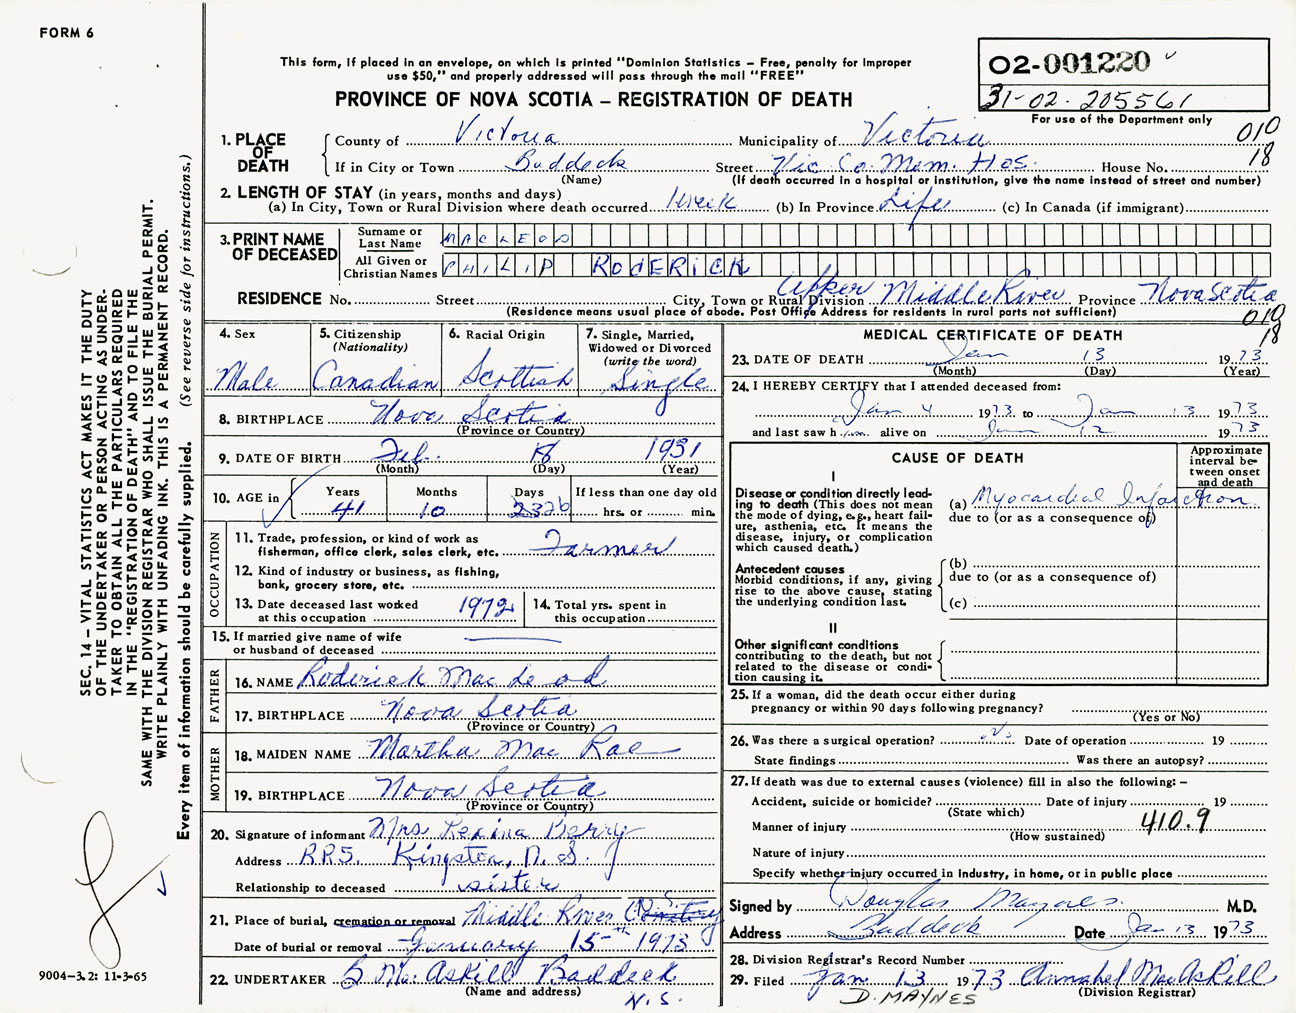 FORM 6
This form, if placed in an envelope, on which is printed "Dominion Statistics – Free, penalty for improper
use $50," and properly addressed will pass through the mail "FREE"
PROVINCE OF NOVA SCOTIA – REGISTRATION OF DEATH
02-001220
31-02-205561
For use of the Department only
010
18
1. PLACE OF DEATH
County of Victoria Municipality of Victoria
If in City or Town Baddeck Street Vic. Co. Mem. Hos. House No.
(Name) (If death occurred in a hospital or institution, give the name instead of street and number)
2. LENGTH OF STAY (in years, months and days)
(a) In City, Town or Rural Division where death occurred 1 week (b) In Province Life (c) In Canada (if immigrant)
3. PRINT NAME OF DECEASED
Surname or Last Name MACLEOD
All Given or Christian Names PHILIP RODERICK
RESIDENCE No. Street City, Town or Rural Division Upper Middle River Province Nova Scotia
(Residence means usual place of abode. Post Office Address for residents in rural parts not sufficient)
010
18
4. Sex Male
5. Citizenship (Nationality) Canadian
6. Racial Origin Scottish
7. Single, Married, Widowed or Divorced (write the word) Single
8. BIRTHPLACE Nova Scotia
(Province or Country)
9. DATE OF BIRTH Feb. 18 1931
(Month) (Day) (Year)
10. AGE in Years Months Days If less than one day old
41 10 23 26 hrs. or min.
OCCUPATION
11. Trade, profession, or kind of work as
fisherman, office clerk, sales clerk, etc. Farmer
12. Kind of industry or business, as fishing,
bank, grocery store, etc.
13. Date deceased last worked at this occupation 1972
14. Total yrs. spent in this occupation
15. If married give name of wife
or husband of deceased
FATHER
16. NAME Roderick MacLeod
17. BIRTHPLACE Nova Scotia
(Province or Country)
MOTHER
18. MAIDEN NAME Martha MacRae
19. BIRTHPLACE Nova Scotia
(Province or Country)
20. Signature of informant Mrs Rexina Berry
Address RR5. Kingston, N.S.
Relationship to deceased sister
21. Place of burial, cremation or removal Middle River C.
Date of burial or removal January 15th 1973
22. UNDERTAKER MacAskill Baddeck
(Name and address) N.S.
MEDICAL CERTIFICATE OF DEATH
23. DATE OF DEATH Jan 13 1973
(Month) (Day) (Year)
24. I HEREBY CERTIFY that I attended deceased from:
Jan 4 1973 to Jan 13 1973
and last saw him alive on Jan 12 1973
CAUSE OF DEATH
Approximate interval between onset and death
I
Disease or condition directly leading to death (This does not mean
the mode of dying, e.g., heart failure, asthenia, etc. It means the
disease, injury, or complication which caused death.)
(a) Myocardial Infarction
due to (or as a consequence of)
Antecedent causes
Morbid conditions, if any, giving
rise to the above cause, stating
the underlying condition last.
(b)
due to (or as a consequence of)
(c)
II
Other significant conditions
contributing to the death, but not
related to the disease or condition causing it.
25. If a woman, did the death occur either during
pregnancy or within 90 days following pregnancy?
(Yes or No)
26. Was there a surgical operation? No Date of operation 19
State findings Was there an autopsy?
27. If death was due to external causes (violence) fill in also the following: –
Accident, suicide or homicide? Date of injury 19
(State which)
Manner of injury 410.9
(How sustained)
Nature of injury
Specify whether injury occurred in industry, in home, or in public place
Signed by Douglas Maynes M.D.
Address Baddeck Date Jan 13 1973
28. Division Registrar's Record Number
29. Filed Jan 13 1973 Annabel MacAskill
(Division Registrar)
D. MAYNES
SEC. 14 – VITAL STATISTICS ACT MAKES IT THE DUTY
OF THE UNDERTAKER OR PERSON ACTING AS UNDERTAKER
TO OBTAIN ALL THE PARTICULARS REQUIRED
IN THE "REGISTRATION OF DEATH" AND TO FILE THE
SAME WITH THE DIVISION REGISTRAR WHO SHALL ISSUE THE BURIAL PERMIT.
WRITE PLAINLY WITH UNFADING INK. THIS IS A PERMANENT RECORD.
Every item of information should be carefully supplied. (See reverse side for instructions.)
9004-3.2: 11-3-65